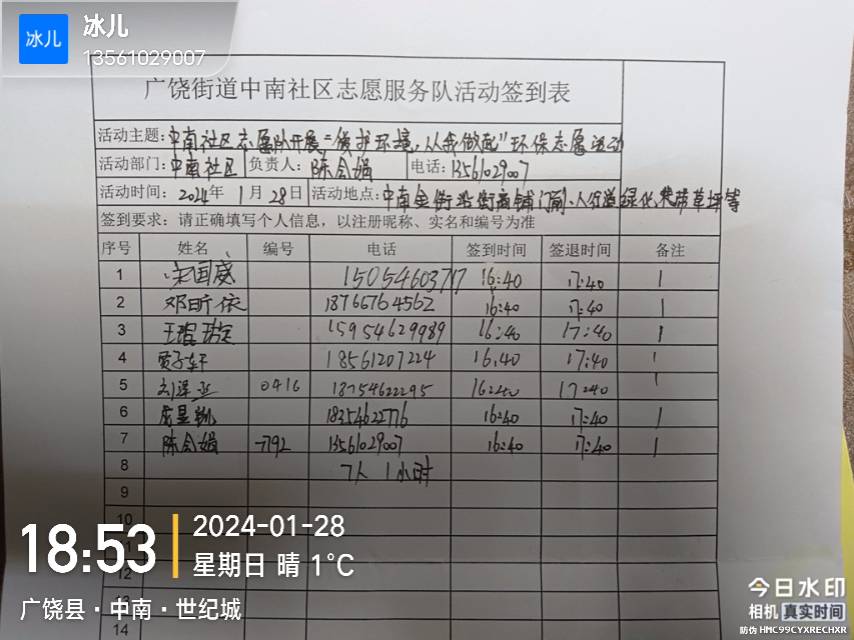 冰儿
冰儿
13561029007
广饶街道中南社区志愿服务队活动签到表
活动主题: 中南社区志愿队开展"保护环境,从我做起"环保志愿活动
活动部门: 中南社区 负责人: 陈会娟 电话: 13561029007
活动时间: 2024年1月28日 活动地点: 中南 街 沿街商铺门前、人行道绿化 草坪等
签到要求: 请正确填写个人信息,以注册昵称、实名和编号为准
序号 姓名 编号 电话 签到时间 签退时间 备注
1 宋国威 15054603717 16:40 17:40 1
2 邓昕依 18766764562 16:40 17:40 1
3 王 15954629989 16:40 17:40 1
4 贾子轩 18561207224 16:40 17:40 1
5 0416 18754622295 16:40 17:40 1
6 18354622776 16:40 17:40 1
7 陈会娟 7792 13561029007 16:40 17:40 1
8 7人 1小时
9
10
12
14
18:53
2024-01-28
星期日 晴 1°C
广饶县·中南·世纪城
今日水印
相机 真实时间
防伪 HMC99CYXRECHXR